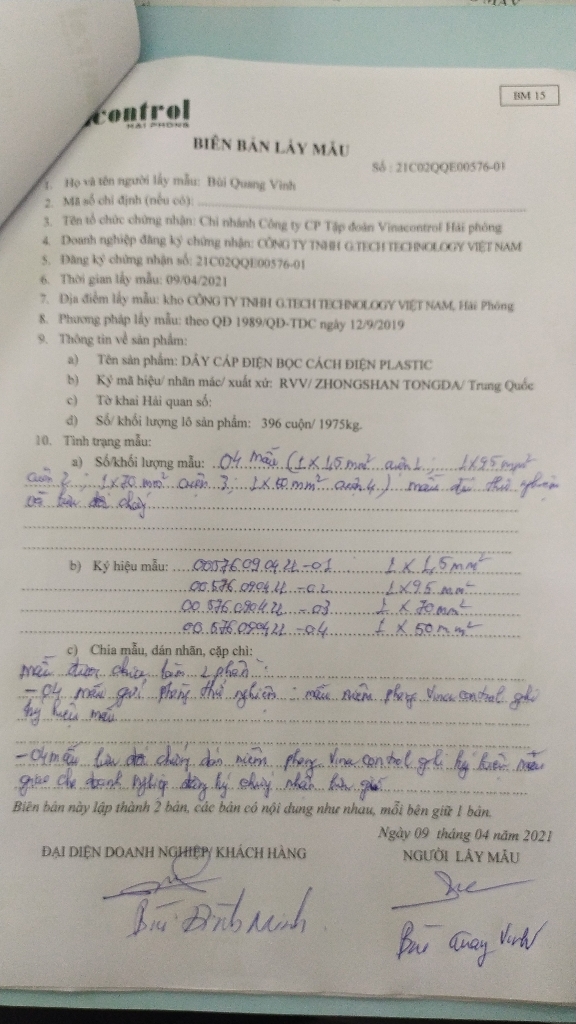 control
HAI PHONG
BM 15
BIÊN BẢN LẤY MẪU
Số : 21C02QQE00576-01
1. Họ và tên người lấy mẫu: Bùi Quang Vinh
2. Mã số chỉ định (nếu có):
3. Tên tổ chức chứng nhận: Chi nhánh Công ty CP Tập đoàn Vinacontrol Hải phòng
4. Doanh nghiệp đăng ký chứng nhận: CÔNG TY TNHH G.TECH TECHNOLOGY VIỆT NAM
5. Đăng ký chứng nhận số: 21C02QQE00576-01
6. Thời gian lấy mẫu: 09/04/2021
7. Địa điểm lấy mẫu: kho CÔNG TY TNHH G.TECH TECHNOLOGY VIỆT NAM, Hải Phòng
8. Phương pháp lấy mẫu: theo QĐ 1989/QĐ-TDC ngày 12/9/2019
9. Thông tin về sản phẩm:
a) Tên sản phẩm: DÂY CÁP ĐIỆN BỌC CÁCH ĐIỆN PLASTIC
b) Ký mã hiệu/ nhãn mác/ xuất xứ: RVV/ ZHONGSHAN TONGDA/ Trung Quốc
c) Tờ khai Hải quan số:
d) Số/ khối lượng lô sản phẩm: 396 cuộn/ 1975kg.
10. Tình trạng mẫu:
a) Số/khối lượng mẫu: 04 mẫu (1 x 1,5 mm² cuộn 1 ; 1 x 95 mm²
cuộn 2 ; 1 x 70 mm² cuộn 3 ; 1 x 50 mm² cuộn 4) mẫu để thử nghiệm
và lưu đối chứng
b) Ký hiệu mẫu: 00576.090421-01 1 x 1,5 mm²
00.576.090421-02 1 x 95 mm²
00.576.090421-03 1 x 70 mm²
00.576.090421-04 1 x 50 mm²
c) Chia mẫu, dán nhãn, cặp chì:
Mẫu được chia làm 2 phần :
- 04 mẫu gửi phòng thử nghiệm : mẫu niêm phong Vinacontrol ghi
ký hiệu mẫu
- 04 mẫu lưu đối chứng dán niêm phong Vinacontrol ghi ký hiệu mẫu
giao cho doanh nghiệp đăng ký chứng nhận lưu giữ
Biên bản này lập thành 2 bản, các bản có nội dung như nhau, mỗi bên giữ 1 bản.
Ngày 09 tháng 04 năm 2021
ĐẠI DIỆN DOANH NGHIỆP/ KHÁCH HÀNG
NGƯỜI LẤY MẪU
Bùi Đình Minh
Bùi Quang Vinh